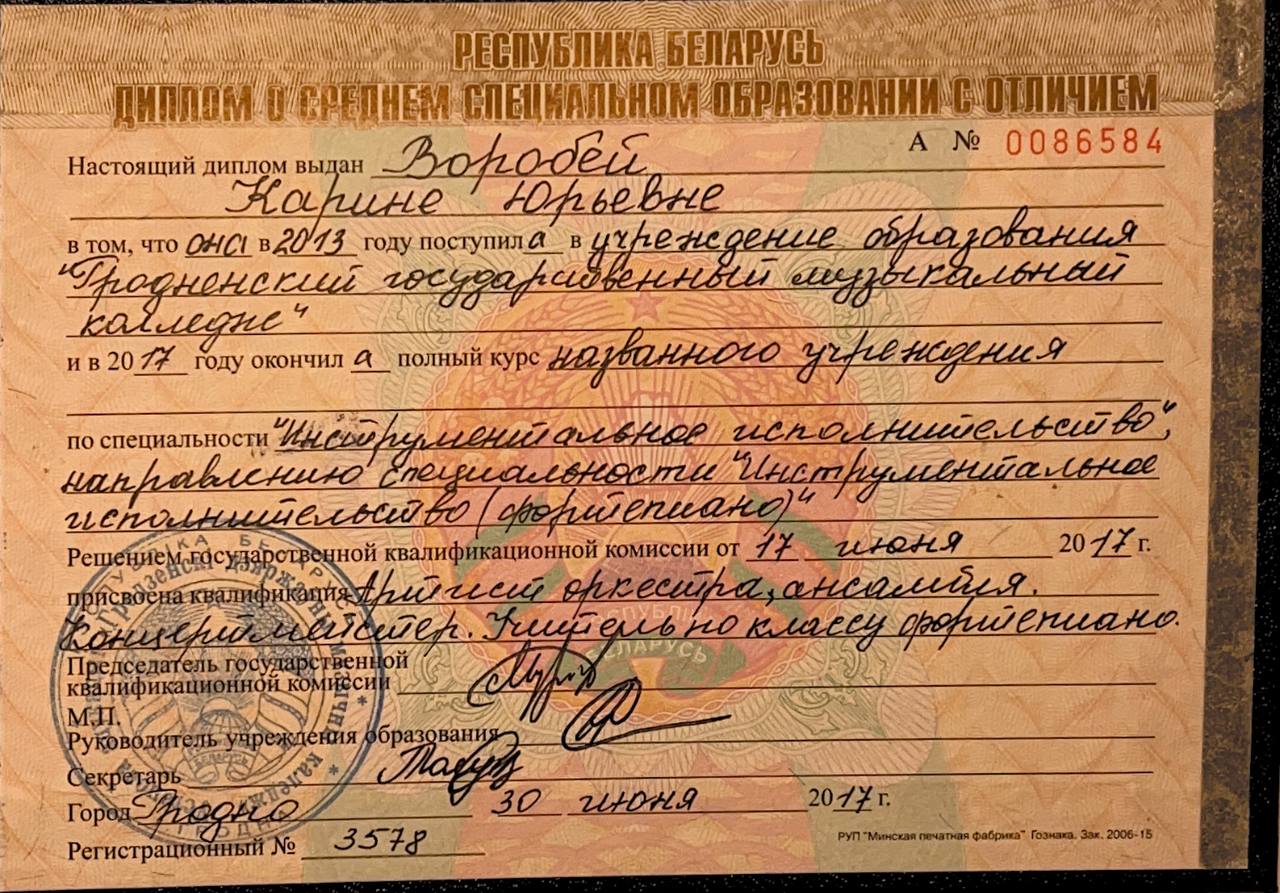 РЕСПУБЛИКА БЕЛАРУСЬ
ДИПЛОМ О СРЕДНЕМ СПЕЦИАЛЬНОМ ОБРАЗОВАНИИ С ОТЛИЧИЕМ
А № 0086584
Настоящий диплом выдан Воробей
Карине Юрьевне
в том, что она в 2013 году поступила в учреждение образования
"Гродненский государственный музыкальный
колледж"
и в 2017 году окончила полный курс названного учреждения
по специальности "Инструментальное исполнительство",
направлению специальности "Инструментальное
исполнительство (фортепиано)"
Решением государственной квалификационной комиссии от 17 июня 2017 г.
присвоена квалификация Артист оркестра, ансамбля.
Концертмейстер. Учитель по классу фортепиано.
Председатель государственной
квалификационной комиссии
М.П.
Руководитель учреждения образования
Секретарь
Город Гродно 30 июня 2017 г.
Регистрационный № 3578
РУП "Минская печатная фабрика" Гознака. Зак. 2006-15
БЕЛАРУСЬ